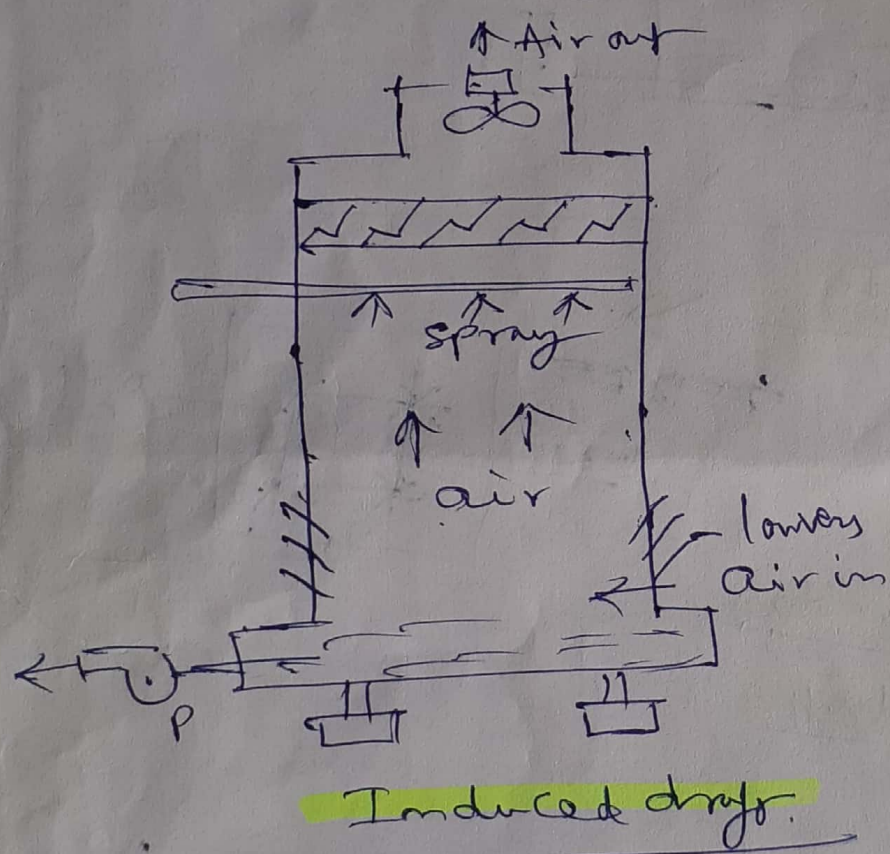 Air out
spray
air
louvers
Air in
P
Induced draft.